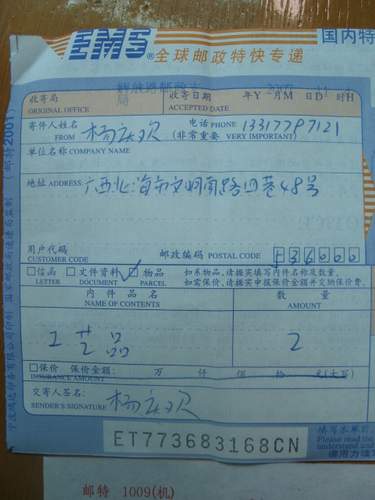 EMS® 全球邮政特快专递 国内特
收寄局 收寄日期 年Y 月M 日D 时H
ORIGINAL OFFICE ACCEPTED DATE
寄件人姓名 杨庆欢 电话 PHONE 13317797121
FROM (非常重要 VERY IMPORTANT)
单位名称 COMPANY NAME
地址 ADDRESS: 广西北海市文明南路四巷48号
用户代码 邮政编码 POSTAL CODE 536000
CUSTOMER CODE
信函 文件资料 物品 如系物品,请据实填写内件名称及数量.
LETTER DOCUMENT PARCEL 如需保价,请据实申报保价金额并交纳保价费.
内件品名 数量
NAME OF CONTENTS AMOUNT
工艺品 2
保价 保价金额: 万 仟 佰 拾 元(大写)
INSURANCE AMOUNT
交寄人签名: 杨庆欢
SENDER'S SIGNATURE
填写本单
Please read the
ET773683168CN
邮特 1009(机)